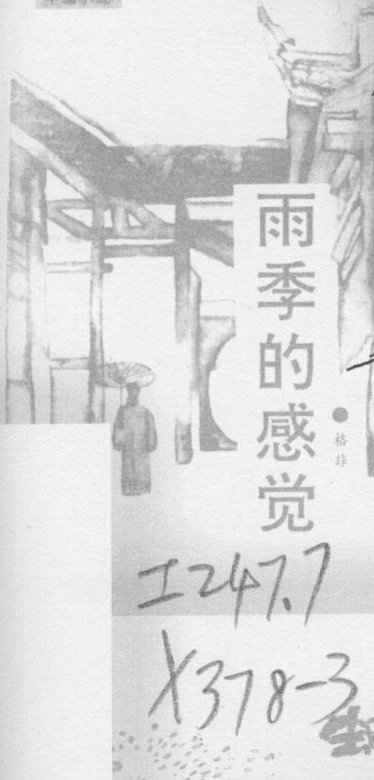 雨季的感觉
格非
I247.7
X378-3